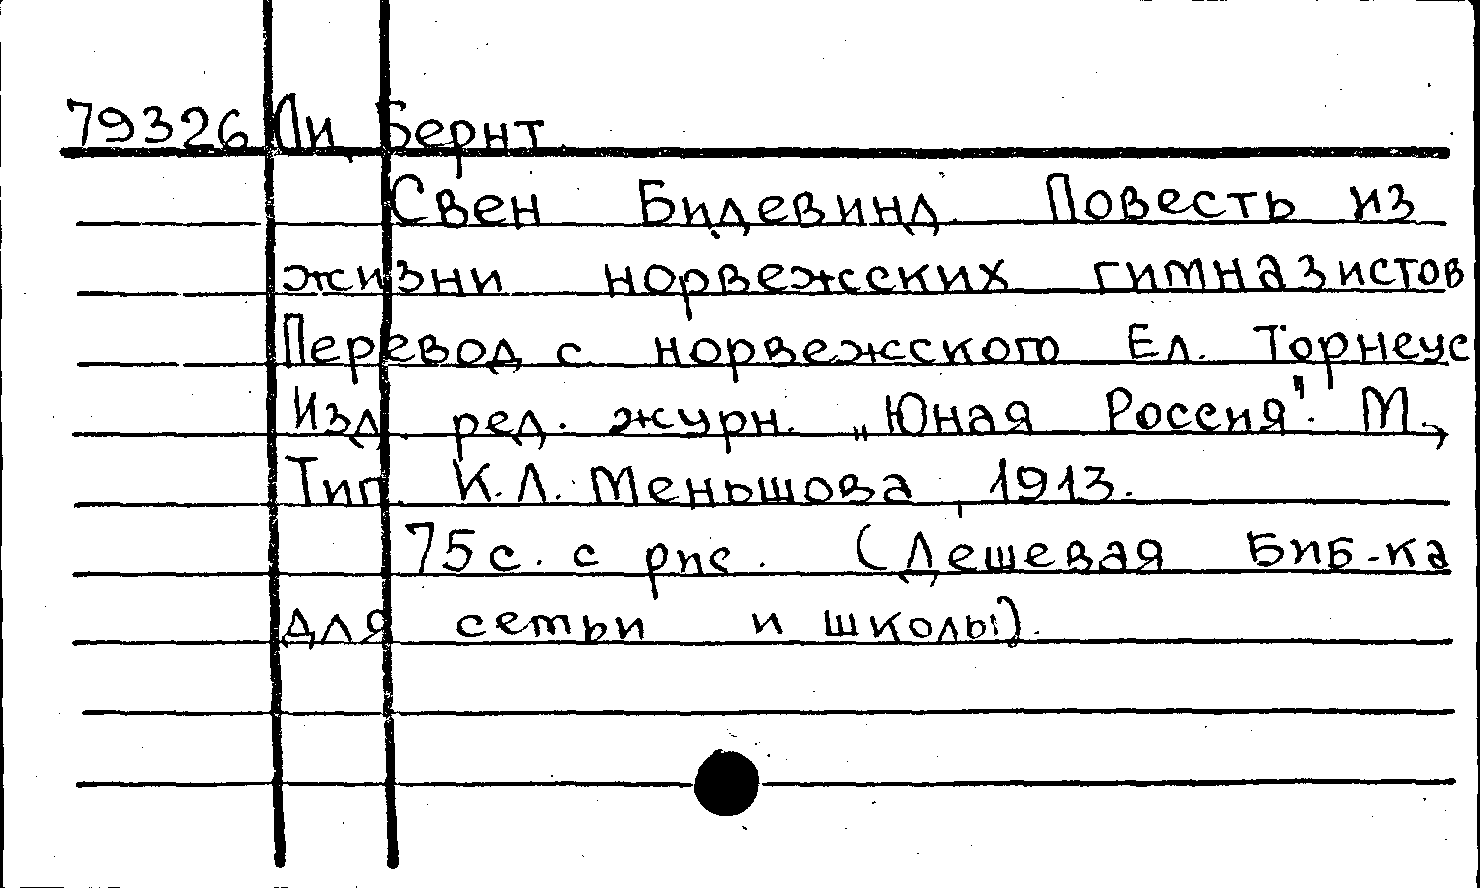 79326 Ли, Бернт.
Свен Бидевинд. Повесть из
жизни норвежских гимназистов
Перевод с норвежского Ел. Торнеус
Изд. ред. журн. „Юная Россия". М.,
Тип. К.Л. Меньшова, 1913.
75 с. с рис. (Дешевая биб-ка
для семьи и школы).